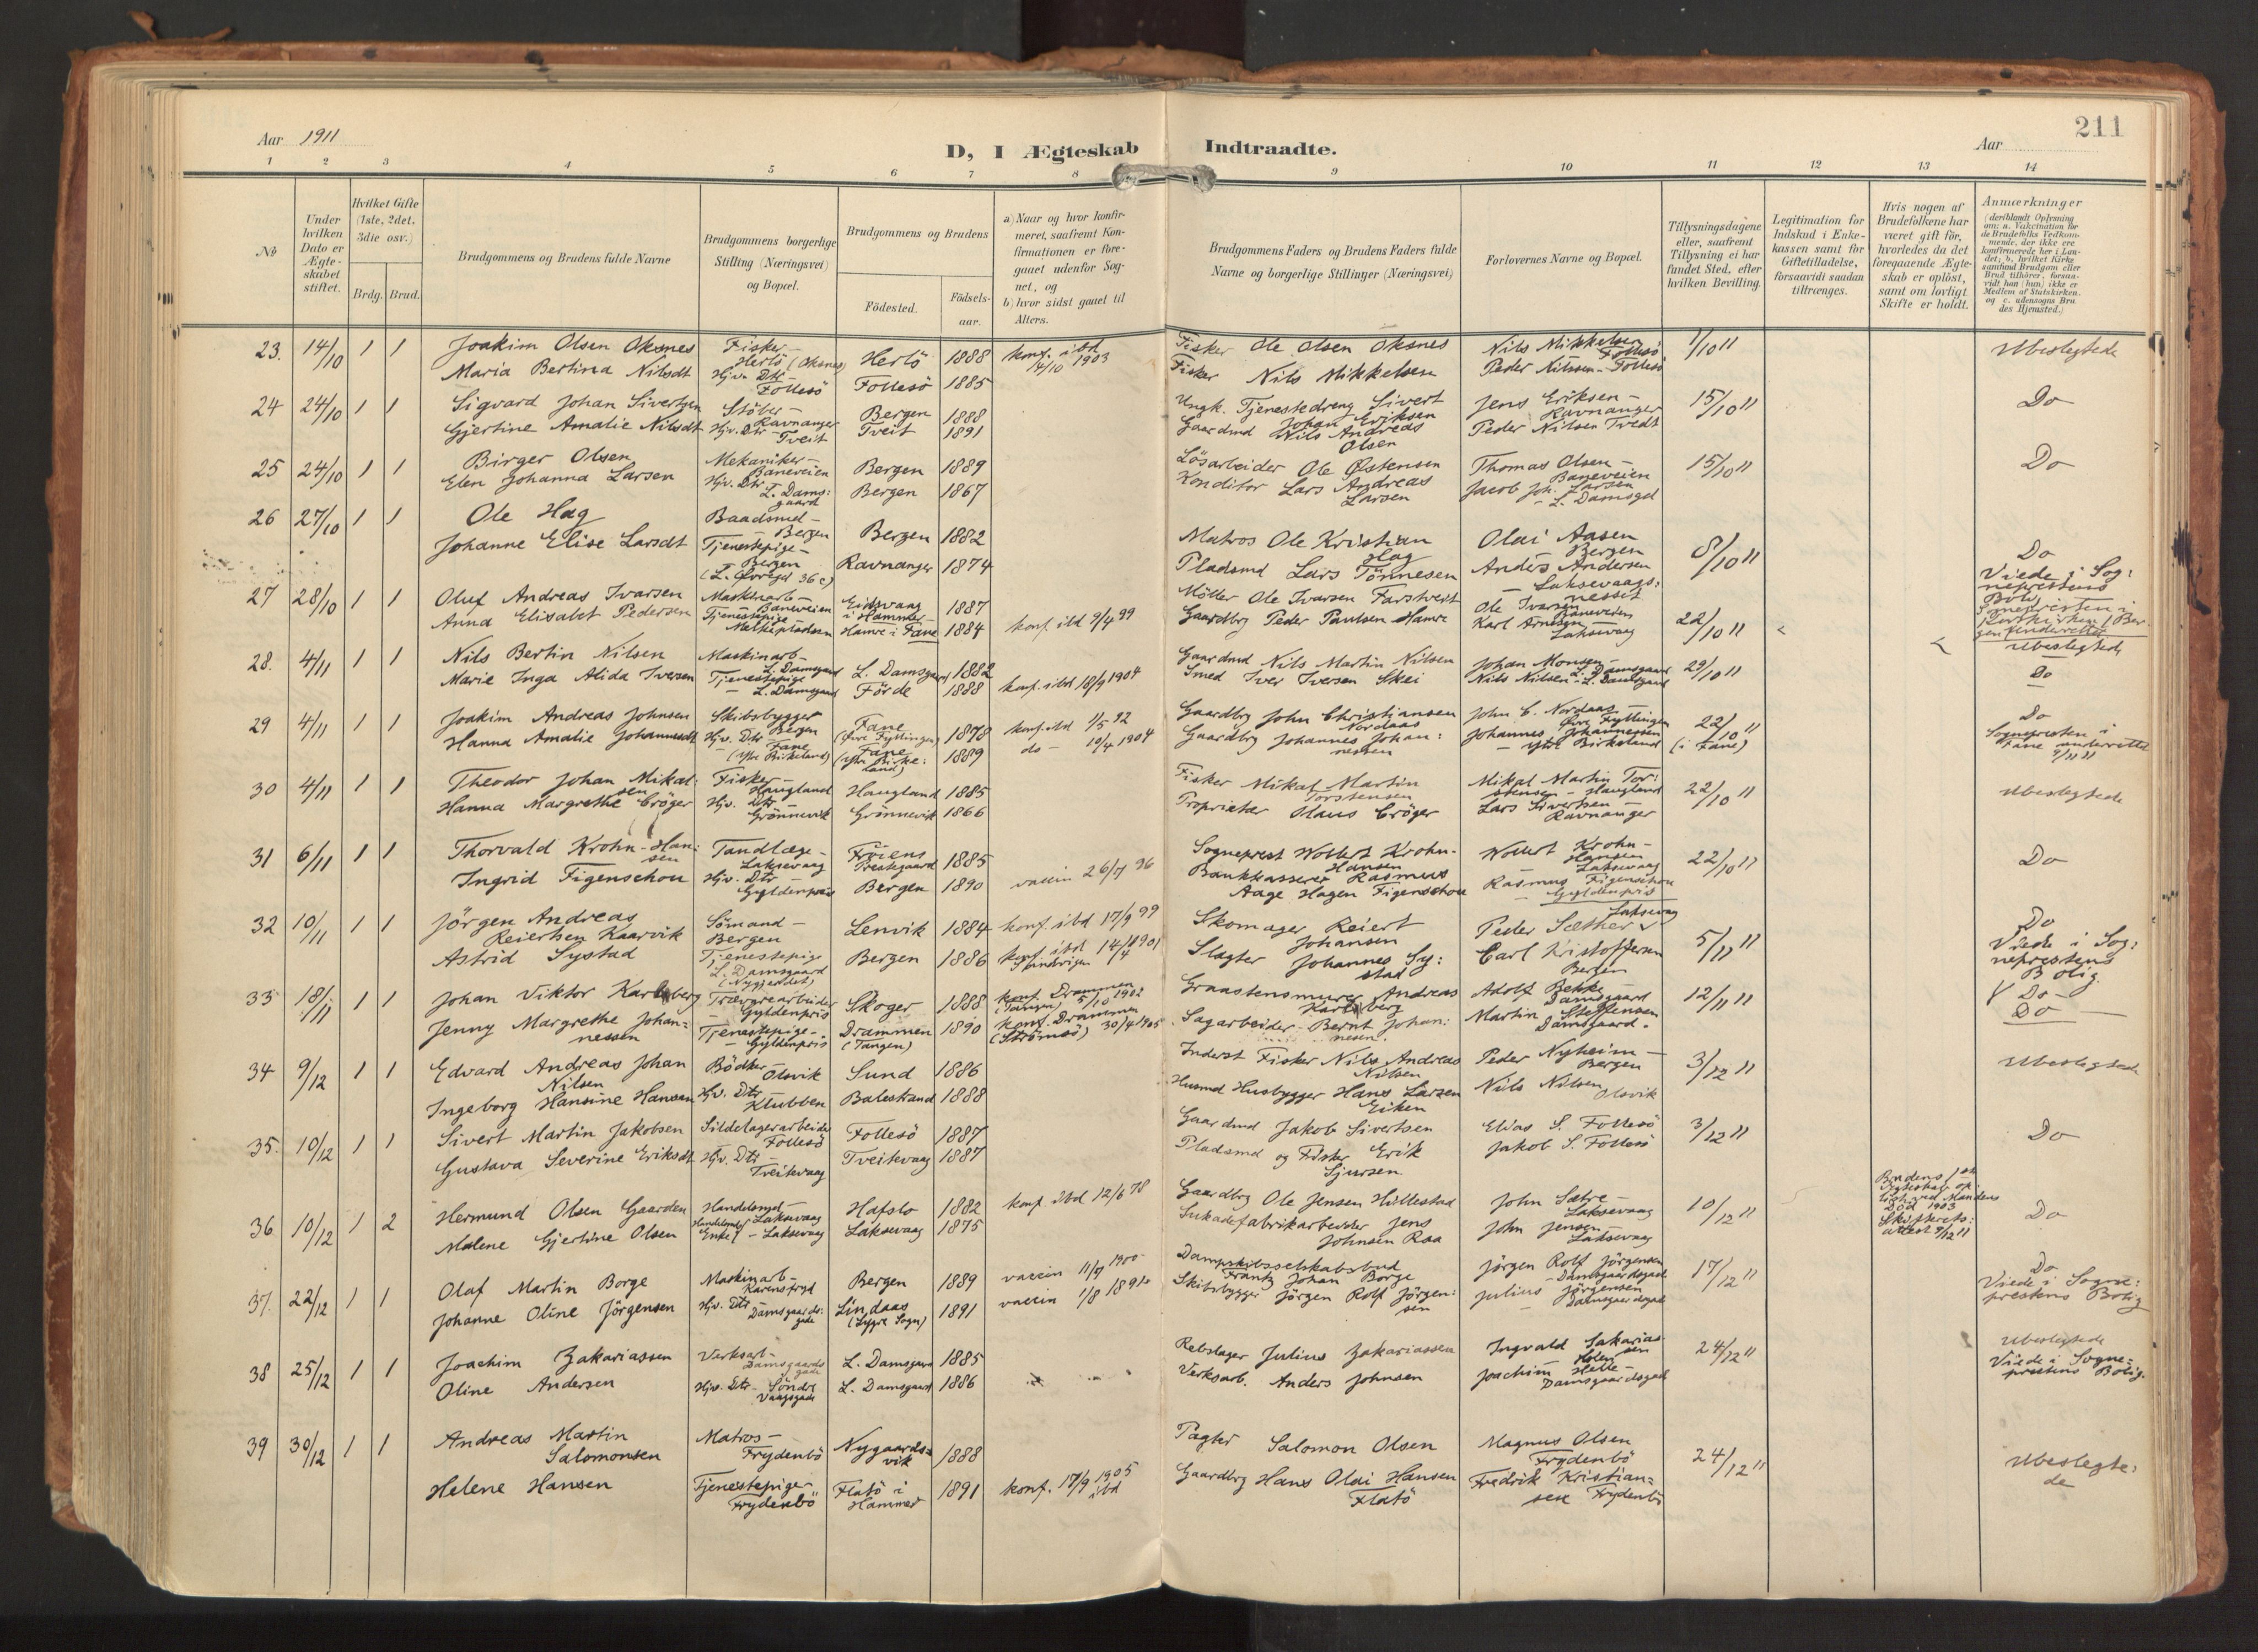 211
Aar 1911
D, I Ægteskab Indtraadte.
Aar
1 2 3 4 5 6 7 8 9 10 11 12 13 14
No
Under hvilken Dato er Ægteskabet stiftet.
Hvilket Gifte (1ste, 2det, 3die osv.)
Brdg. Brud.
Brudgommens og Brudens fulde Navne
Brudgommens borgerlige Stilling (Næringsvei) og Bopæl.
Brudgommens og Brudens
Födested.
Födselsaar.
a) Naar og hvor konfirmeret, saafremt Konfirmationen er foregaaet udenfor Sognet, og
b) hvor sidst gaaet til Alters.
Brudgommens Faders og Brudens Faders fulde Navne og borgerlige Stillinger (Næringsvei)
Forlovernes Navne og Bopæl.
Tillysningsdagene eller, saafremt Tillysning ei har fundet Sted, efter hvilken Bevilling.
Legitimation for Indskud i Enkekassen samt for Giftetilladelse, forsaavidt saadan tiltrænges.
Hvis nogen af Brudefolkene har været gift før, hvorledes da det foregaaende Ægteskab er oplöst, samt om lovligt Skifte er holdt.
Anmærkninger (deriblandt Oplysning om: a. Vakcination for de Brudefolks Vedkommende, der ikke ere konfirmerede her i Landet; b. hvilket Kirkesamfund Brudgom eller Brud tilhörer, forsaavidt han (hun) ikke er Medlem af Statskirken, og c. udensogns Brudes Hjemsted.)
23. 14/10 1 1 Joakim Olsen Oksnes Fisker - Herlö (Oksnes) Herlö 1888 konf. ibd 14/10 1903 Fisker Ole Olsen Oksnes Nils Mikkelsen Follesö 1/10 11 Ubeslegtede
Maria Bertina Nilsdt Hjv. Dtr - Follesö Follesö 1885 Fisker Nils Mikkelsen Peder Nilssen - Follesö
24 24/10 1 1 Sigvard Johan Sivertsen Stöber - Ravnanger Bergen 1888 Ungk. Tjenestedreng Sivert Johan Eriksen Jens Eriksen - Ravnanger 15/10 11 Do
Gjertine Amalie Nilsdt Hjv. Dtr - Tveit Tveit 1891 Gaardmd Nils Andreas Olsen Peder Nilsen Tvedt
25 24/10 1 1 Birger Olsen Mekaniker - Baneveien Bergen 1889 Lösarbeider Ole Östensen Thomas Olsen - Baneveien 15/10 11 Do
Elen Johanna Larsen Hjv. Dtr L. Damsgaard Bergen 1867 Konditor Lars Andreas Larsen Jacob Joh. Larsen - L. Damsgd
26 27/10 1 1 Ole Hag Baadsmd - Bergen Bergen 1882 Matros Ole Kristian Hag Olai Aasen Bergen 8/10 11 Do
Johanne Elise Larsdt Tjenestepige - Bergen (L. Øvregd 36 c) Ravnanger 1874 Pladsmd Lars Tönnesen Anders Andersen - Laksevaagsnesset Viede i Sogneprestens Bolig
27 28/10 1 1 Oluf Andreas Ivarsen Maskinarb - Baneveien Eidsvaag i Hammer 1887 Möller Ole Ivarsen Farstveit Ole Ivarsen Baneveien 22/10 11 Sognepresten i Korskirken i Bergen underrettet
Anna Elisabet Pedersen Tjenestepige - Melkeplassen Hamre i Fane 1884 konf. ibd 9/4 99 Gaardbrg Peder Paulsen Hamre Karl Arnesen Laksevaag Ubeslegtede
28. 4/11 1 1 Nils Bertin Nilsen Maskinarb - L. Damsgaard L. Damsgaard 1882 Gaardmd Nils Martin Nilsen Johan Monsen - L. Damsgaard 29/10 11 Do
Marie Inga Alida Iversen Tjenestepige - L. Damsgaard Förde 1888 konf. ibd 18/9 1904 Smed Iver Iversen Skei Nils Nilsen - L. Damsgaard
29 4/11 1 1 Joakim Andreas Johnsen Skibsbygger Bergen Fane (Övre Fyllingen) 1878 konf. ibd 1/5 92 Gaardbrg John Christiansen Nordaas John C. Nordaas - Övre Fyllingen 22/10 11 (i Fane) Do
Hanna Amalie Johannesdt Hjv. Dtr - Fane (Ytre Birkeland) Fane (Ytre Birkeland) 1889 do - 10/4 1904 Gaardbrg Johannes Johannessen Johannes Johannessen - Ytre Birkeland Sognepresten i Fane underrettet 9/11 11
30 4/11 1 1 Theodor Johan Mikalsen Fisker - Haugland Haugland 1885 Fisker Mikal Martin Torstensen Mikal Martin Torstensen - Haugland 22/10 11 Ubeslegtede
Hanna Margrethe Cröger Hjv. Dtr - Grönnevik Grönnevik 1866 Proprietær Claus Cröger Lars Sivertsen - Ravnanger
31 6/11 1 1 Thorvald Krohn-Hansen Tandlæge - Laksevaag Fröiens Prestegaard 1885 Sogneprest Wollert Krohn-Hansen Wollert Krohn-Hansen Laksevaag 22/10 11 Do
Ingrid Figenschou Hjv. Dtr - Gyldenpris Bergen 1890 vaccin 26/7 96 Bankkasserer Rasmus Aage Hagen Figenschou Rasmus Figenschou Gyldenpris Laksevaag
32 10/11 1 1 Jörgen Andreas Reiertsen Kaarvik Sömand - Bergen Lenvik 1884 konf. ibd 17/9 99 Skomager Reiert Johansen Peder Sæther 5/11 11 Do
Astrid Systad Tjenestepige L. Damsgaard (Nygjerdet) Bergen 1886 konf. ibd 14/4 1901 Slagter Johannes Systad Carl Kristoffersen Bergen Viede i Sogneprestens Bolig.
33 18/11 1 1 Johan Viktor Karlsberg Trævarearbeider - Gyldenpris Skoger 1888 konf. Drammen (Tangen) 5/10 1902 Graastensmurer Andreas Karlsberg Adolf Bekke Damsgaard 12/11 11 Do
Jenny Margrethe Johannessen Tjenestepige - Gyldenpris Drammen (Tangen) 1890 konf. Drammen (Strömsö) 30/4 1905 Sagarbeider Bernt Johannesen. Martin Steffensen Damsgaard. Do
34 9/12 1 1 Edvard Andreas Johan Nilsen Bödker Olsvik Sund 1886 Inderst Fisker Nils Andreas Nilsen Peder Nyheim - Bergen 3/12 11 Ubeslegtede
Ingeborg Hansine Hansen Hjv. Dtr Klubben Balestrand 1888 Husmd Husbygger Hans Larsen Eiken Nils Nilsen Olsvik
35. 10/12 1 1 Sivert Martin Jakobsen Sildelagerarbeider Follesö Follesö 1887 Gaardmd Jakob Sivertsen Elias S. Follesö 3/12 11 Do
Gustava Severine Eriksdt Hjv. Dtr - Tveitevaag Tveitevaag 1887 Pladsmd og Fisker Erik Sjursen Jakob S. Follesö
36 10/12 1 2 Hermund Olsen Gaarden Handelsmd - Laksevaag Hafslo 1882 konf. ibd 12/6 78 Gaardbrg Ole Jensen Hillestad John Sætre - Laksevaag 10/12 11 Brudens 1ste Egteskab opløst ved Mandens Död 1903 Skifterets attest 9/12 11 Do
Malene Gjertine Olsen Enke - Laksevaag Laksevaag 1875 Sukadefabrikarbeider Jens Johnsen Raa John Jensen - Laksevaag
37. 22/12 1 1 Olaf Martin Borge Maskinarb - Karensfryd Bergen 1889 vaccin 11/7 1900 Dampskibsselskabsbud Frantz Johan Borge Jörgen Rolf Jörgensen - Damsgaardsgade 17/12 11 Do
Johanne Oline Jörgensen Hjv. Dtr Damsgaardsgade Lindaas (Lygre Sogn) 1891 vaccin 1/8 1891 Skibsbygger Jörgen Rolf Jörgensen Julius Jörgensen - Damsgaardsgade Viede i Sogneprestens Bolig
38 25/12 1 1 Joachim Zakariassen Verksarb - Damsgaardsgade L. Damsgaard 1885 Rebslager Julius Zakariassen Ingvald Sakariassen Holen 24/12 11 Ubeslegtede
Oline Andersen Hjv. Dtr - Söndre Vaagsgade L. Damsgaard 1886 Verksarb. Anders Johnsen Joachim Helle - Damsgaardsgade Viede i Sogneprestens Bolig.
39 30/12 1 1 Andreas Martin Salomonsen Matros - Frydenbö Nygaardsvik 1888 Pagter Salomon Olsen Magnus Olsen Frydenbö 24/12 11 Ubeslegtede
Helene Hansen Tjenestepige - Frydenbö Flatö i Hammer 1891 konf. 17/9 1905 ibd Gaardbrg Hans Olai Hansen Flatö Fredrik Kristiansen Frydenbö